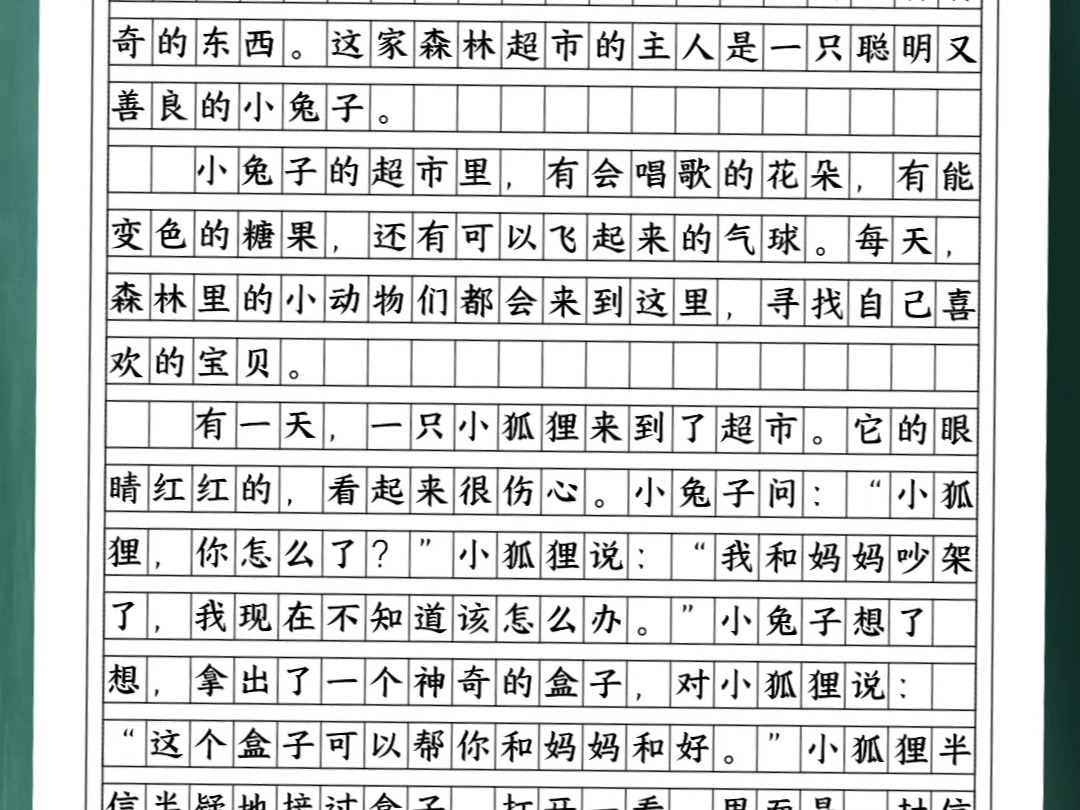 奇的东西。这家森林超市的主人是一只聪明又
善良的小兔子。
小兔子的超市里，有会唱歌的花朵，有能
变色的糖果，还有可以飞起来的气球。每天，
森林里的小动物们都会来到这里，寻找自己喜
欢的宝贝。
有一天，一只小狐狸来到了超市。它的眼
睛红红的，看起来很伤心。小兔子问：“小狐
狸，你怎么了？”小狐狸说：“我和妈妈吵架
了，我现在不知道该怎么办。”小兔子想了
想，拿出了一个神奇的盒子，对小狐狸说：
“这个盒子可以帮你和妈妈和好。”小狐狸半
信半疑地接过盒子，打开一看，里面是一封信